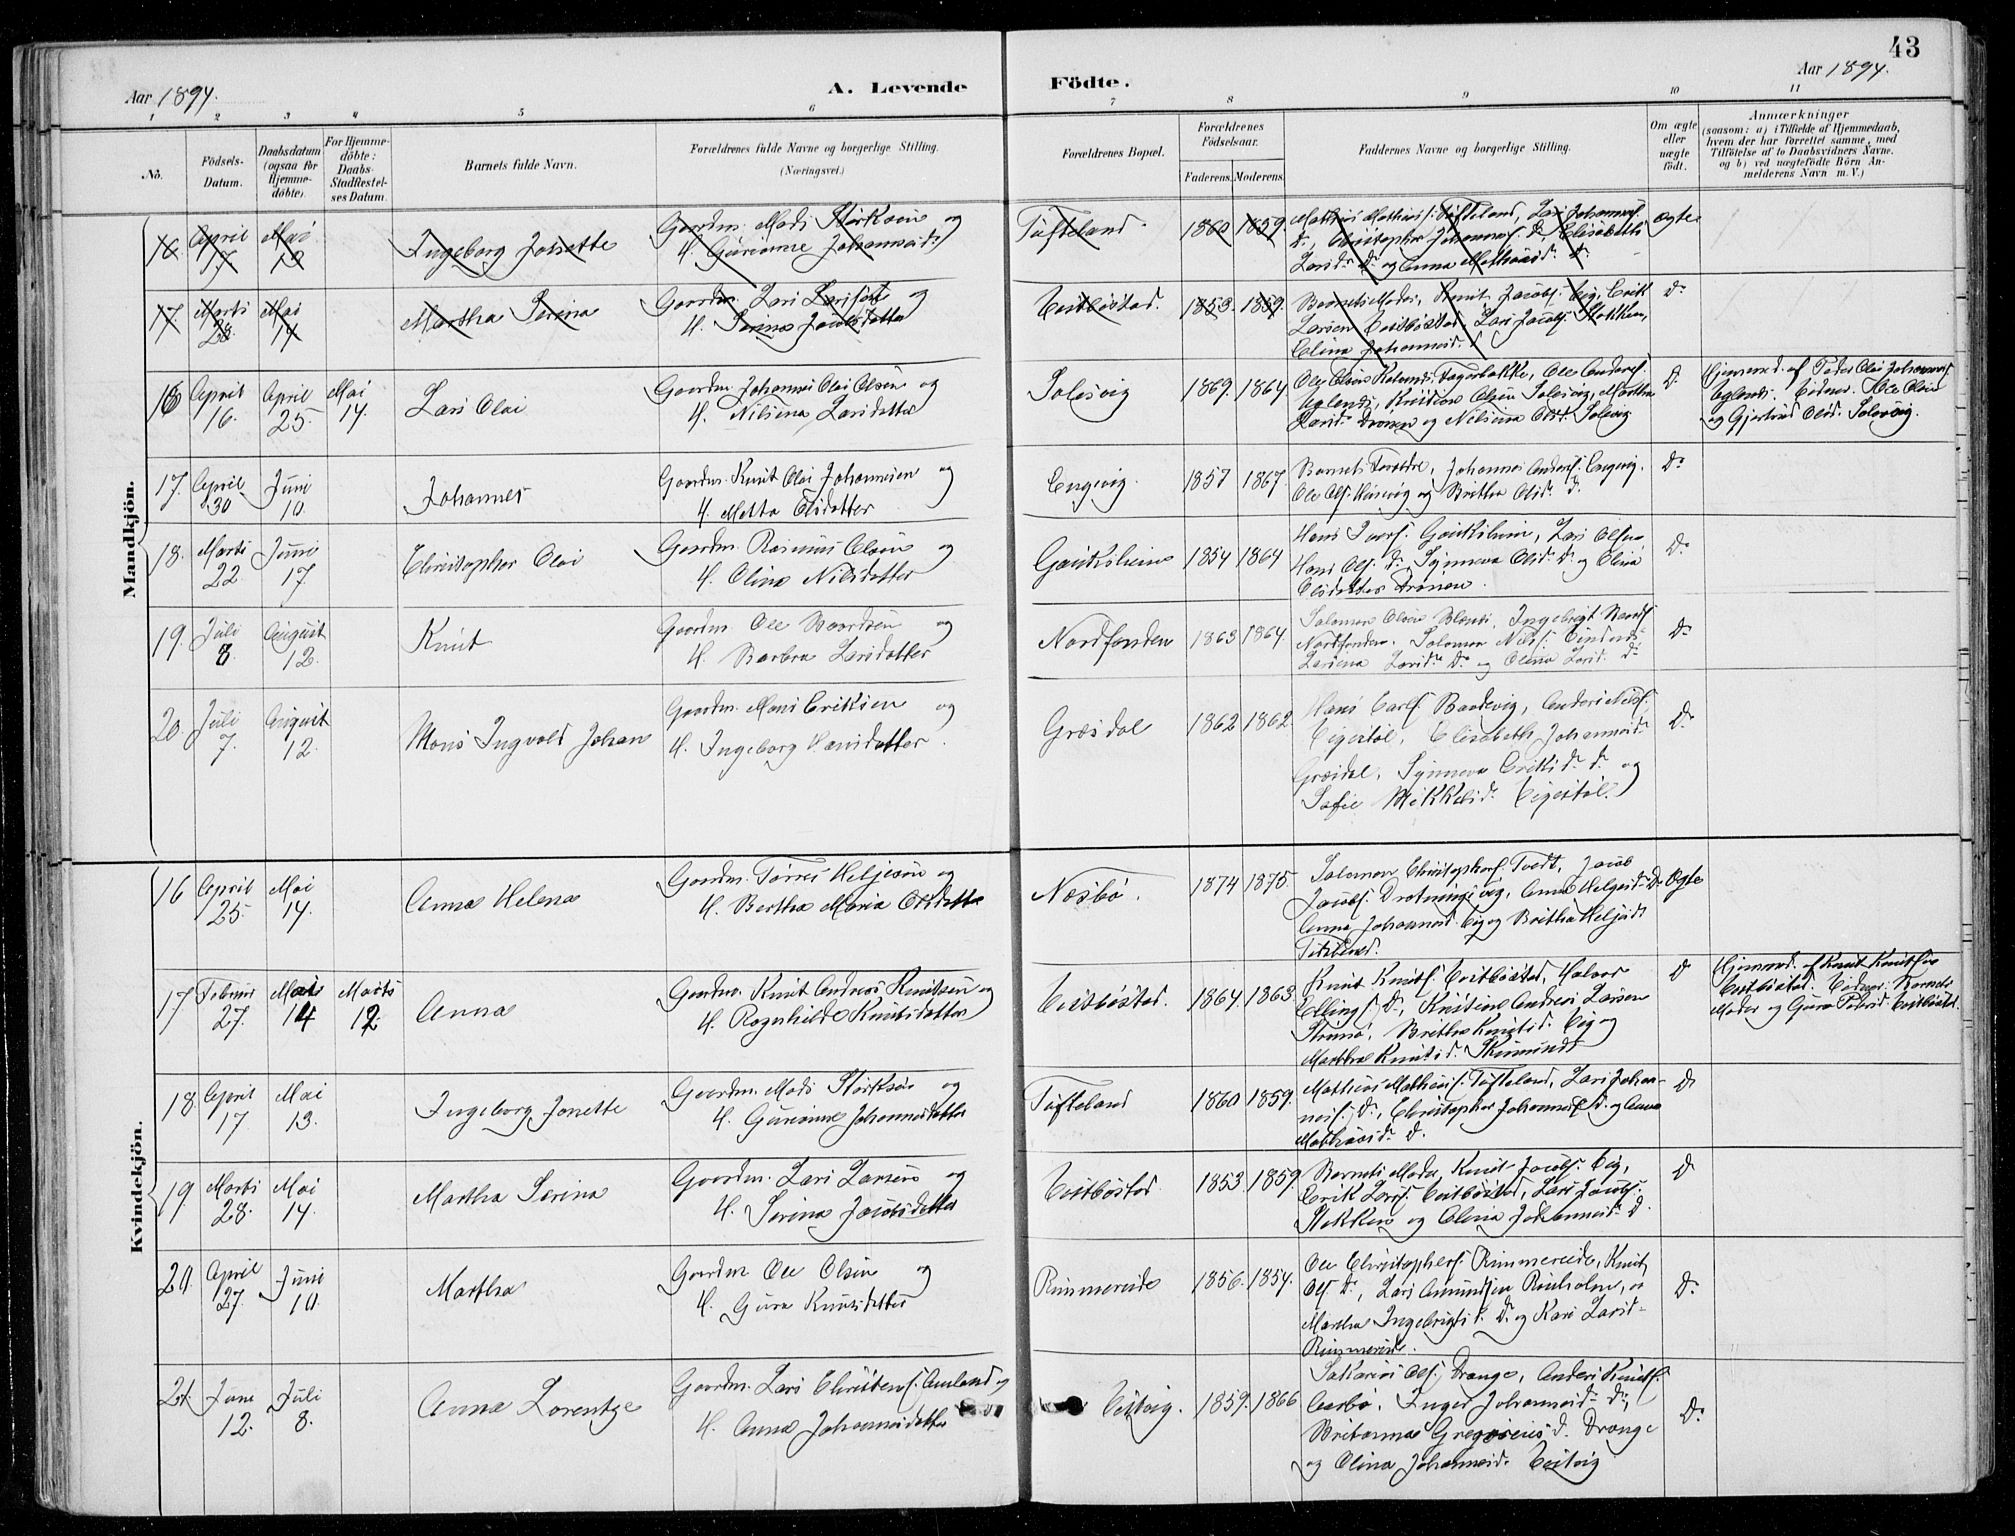 43
Aar 1894.
A. Levende
Födte.
Aar 1894.
1 2 3 4 5 6 7 8 9 10 11
No.
Födsels-
Datum.
Daabsdatum
(ogsaa for
Hjemme-
döbte).
For Hjemme-
döbte:
Daabs-
Stadfæstel-
ses Datum.
Barnets fulde Navn.
Forældrenes fulde Navne og borgerlige Stilling.
(Næringsvei.)
Forældrenes Bopæl.
Forældrenes
Födselsaar.
Faderens. Moderens.
Faddernes Navne og borgerlige Stilling.
Om ægte
eller
uægte
födt.
Anmærkninger
(saasom: a) i Tilfælde af Hjemmedaab,
hvem der har forrettet samme, med
Tilföielse af to Daabsvidners Navne.
og b) ved uægtefödte Börn An-
melderens Navn m. V.)
Mandkjön.
16 April 17 Mai 13 Ingeborg Jonette
Gaardm. Mads Størksen og
H. Gurianne Johannesd.
Tøfteland 1860 1859
Mathias Mathias f. Tøfteland, Lars Johannesf.
D., Christopher Johannesf. D., Elisabeth
Larsd. D. og Anna Mathiasd. D.
Ægte
17 Marts 28 Mai 14 Martha Serina
Gaardm. Lars Larsen og
H. Serina Jacobsdatter
Eestbøstad. 1853. 1859.
Barnets Moder, Knut Jacobs. Eig, Erik
Larsen Eestbøstad, Lars Jacobs. Stokken,
Elina Johannesd. D.
16 April 16. April 25. Mai 14. Lars Olai
Gaardm. Johannes Olai Olsen og
H. Nilsina Larsdatter
Solesvig 1869. 1864
Uglands, Kristian Olsen Solesvig, Martha
Larsd. Drønen og Nilsina Olsd. Solesvig
D.
Hjemmed. af Peder Olai Johannes
Uglands. Vidner. Ole Olsen
og Gjertrud Olsd. Solesvig.
17. April 30 Juni 10. Johannes
Gaardm. Knut Olai Johannesen og
H. Metta Olsdatter
Engevig. 1857 1867.
Barnets Forældre, Johannes Anders. Engevig.
Ole Ols. Huvig og Britha Olsd. D.
D.
18. Marts 22. Juni 17. Christopher Olai
Gaardm. Rasmus Olsen og
H. Olina Nilsdatter
Gautesheim 1854 1864
Hans Iversf. Gautesheim, Lars Olsen
Hans Ols. D., Synneva Olsd. D. og Elina
Olsdatter Drønen.
D.
19. Juli 8. August 12. Knut
Gaardm. Ole Baardsen og
H. Barbra Larsdatter
Nordfonden 1863 1864.
Solomon Olsen Blænes, Ingebrigt Baards.
Nordfonden. Solomon Nilsf.
Larsina Larsd. D. og Olina Larsd. D.
D.
20. Juli 7. August 12. Mons Ingvald Johan
Gaardm. Mons Eriksen og
H. Ingeborg Hansdatter.
Græsdal 1862 1862.
Hans Carlf. Baadevig, Anders Nilsf.
Eigestøl, Elisabeth Johannesd.
Græsdal, Synneva Eriksd. D. og
Sofie Mikkelsd. Eigestøl.
D.
Kvindekjön.
16 April 25. Mai 14. Anna Helena
Gaardm. Tørres Helgesen og
H. Bertha Maria Olsdatter
Næsbø. 1874 1875.
Solomon Christophersf. Tvedt, Jacob
Jacobs. Drotningsvig, Anna Helgesd. D.
Anna Johannesd. Eig og Britha Heljesd.
Ægte
17. Februar 27. Mai 14 Marts 12. Anna
Gaardm. Knut Andreas Knutsen og
H. Ragnhilde Knutsdatter
Eestbøstad. 1864. 1863.
Knut Knutsf. Eestbøstad, Halvor
Ellings f. D., Kristine Andreas Larsen
Strunø, Britha Knutsd. Eig og
Martha Knutsd.
D
Hjemmed. af Knut Knutsen
Eestbøstad. Vidner: Barnets
Moder og Guro Pedersd. Eestbøstad.
18. April 17. Mai 13. Ingeborg Jonette
Gaardm. Mads Størksen og
H. Gurianne Johannesdatter
Tøfteland 1860 1859.
Mathias Mathias f. Tøfteland, Lars Johan-
nesf. D., Christopher Johannesf. D. og Anna
Mathiasd. D.
D
19. Marts 28. Mai 14. Martha Serina
Gaardm. Lars Larsen og
H. Serina Jacobsdatter
Eestbøstad. 1853. 1859.
Barnets Moder, Knut Jacobs. Eig,
Erik Larsf. Eestbøstad, Lars Jacobs.
Stokken og Elina Johannesd. D.
D
20. April 27. Juni 10. Martha
Gaardm. Ole Olsen og
H. Guro Knutsdatter
Rimmereide 1856. 1854.
Ole Christophersf. Rimmereide, Knut
Ols. D., Lars Amundsen
Martha Ingebrigtsd. D. og Kari Larsd.
Rimmereide.
D.
21. Juni 12. Juli 8. Anna Lorentze
Gaardm. Lars Christensf. Auland og
H. Anna Johannesdatter
Eitvig. 1859. 1866
Sakarias Ols. Drange, Anders Knutsf.
Aarbø, Inger Johannesd. D.,
Britanna Gregoriusd. Drange
og Olina Johannesd. Eitvig
D.